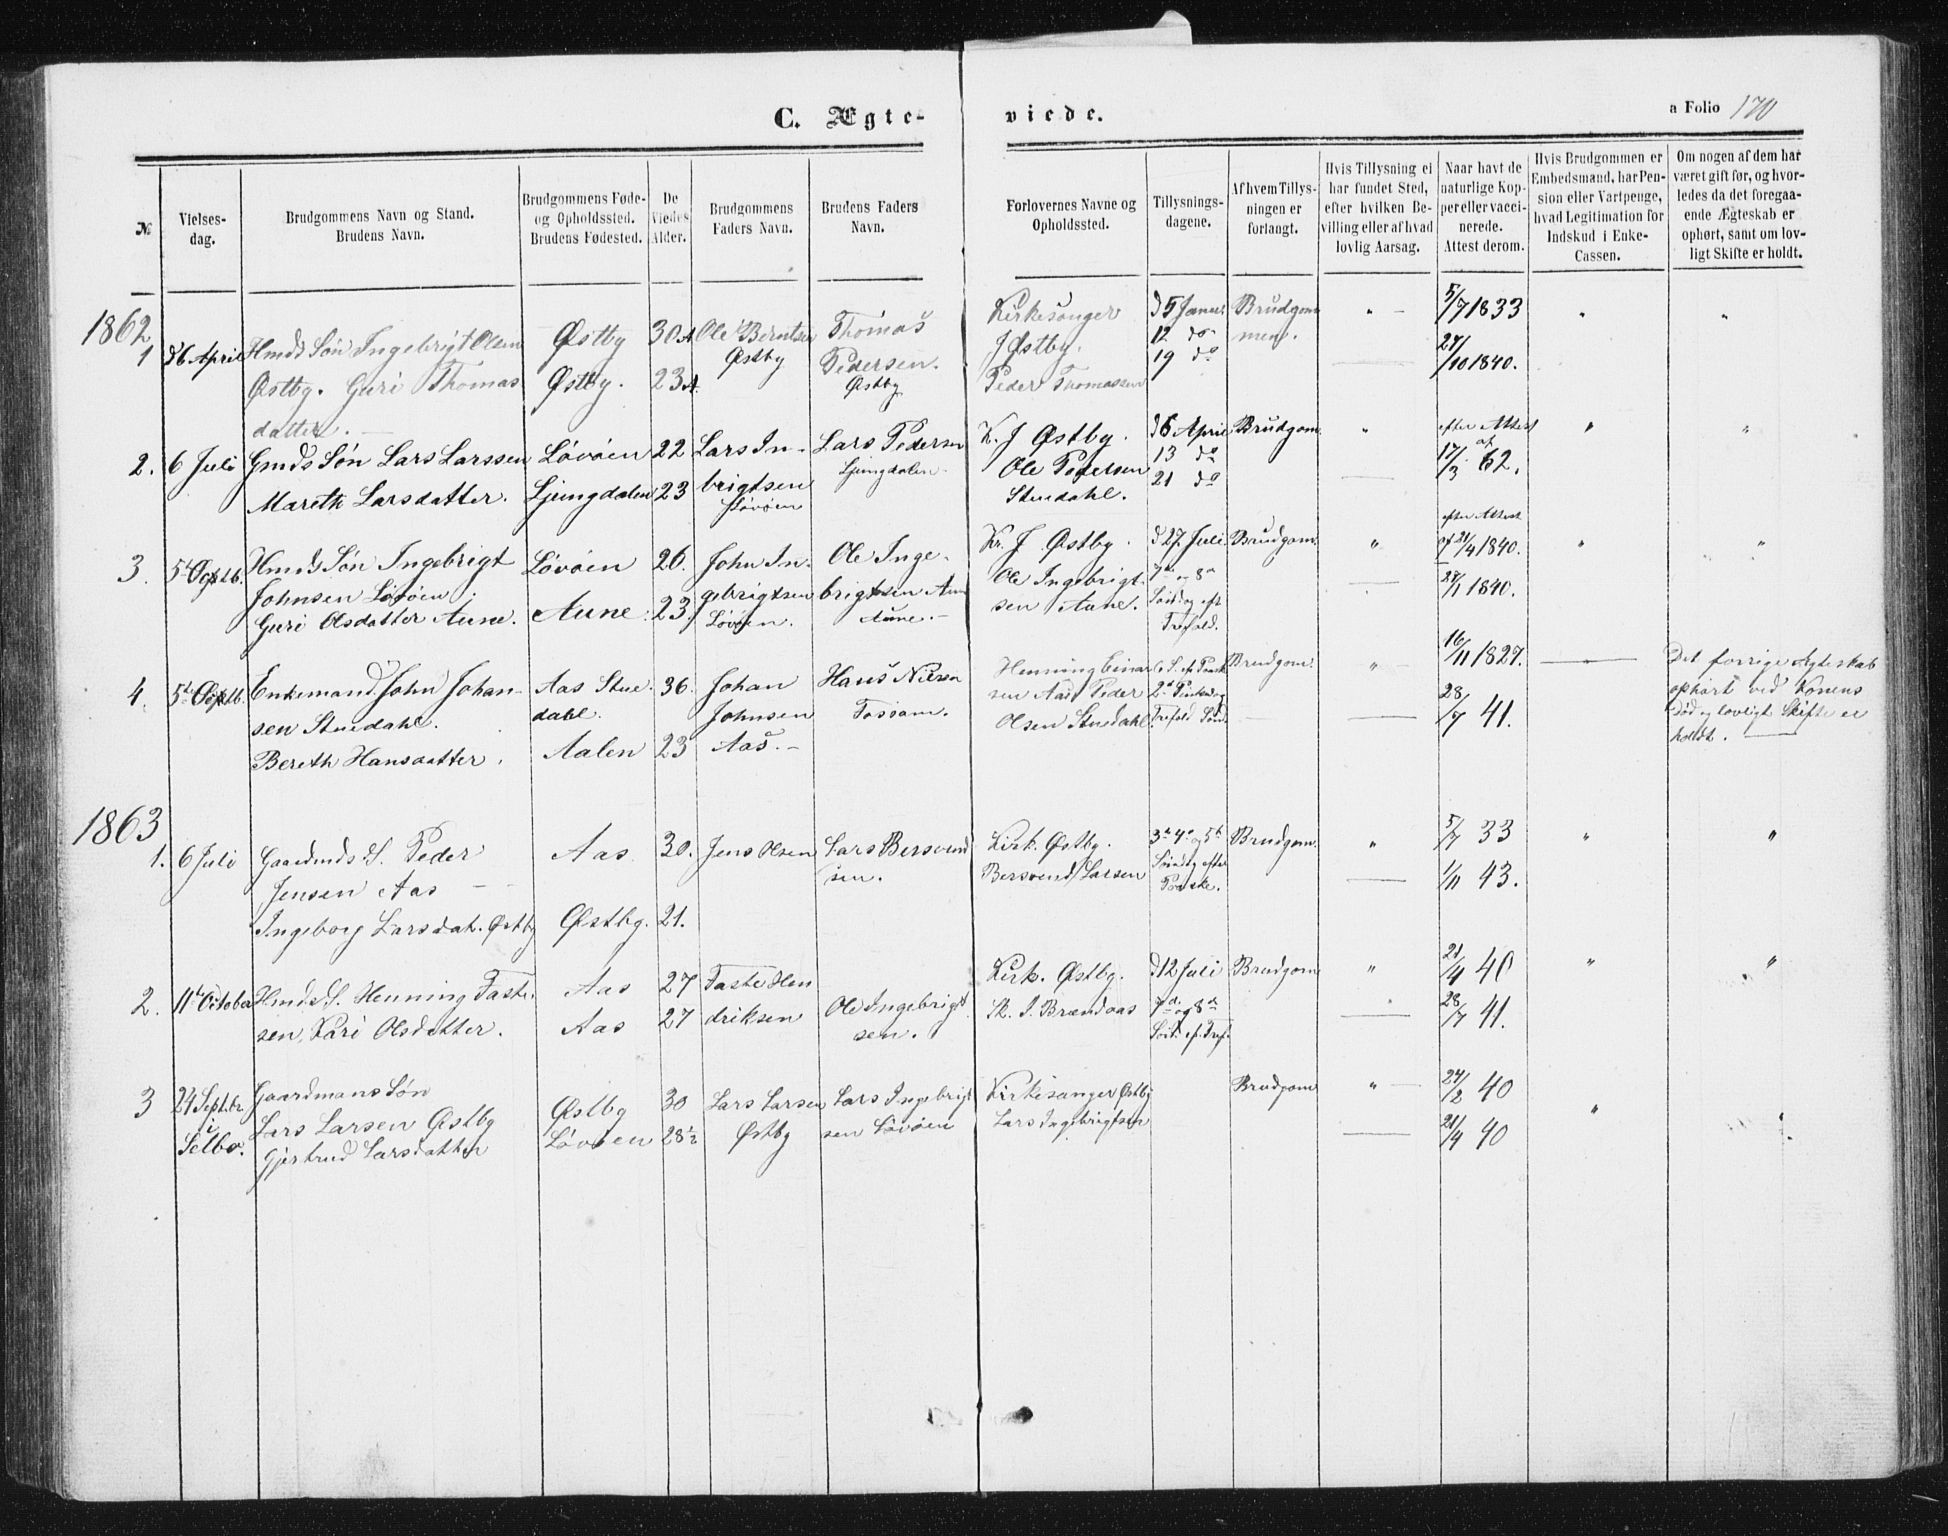 C. Ægte-
viede.
a Folio 170
№
Vielses-
dag.
Brudgommens Navn og Stand.
Brudens Navn.
Brudgommens Føde-
og Opholdssted.
Brudens Fødested.
De
Viedes
Alder.
Brudgommens
Faders Navn.
Brudens Faders
Navn.
Forlovernes Navne og
Opholdssted.
Tillysnings-
dagene.
Af hvem Tillys-
ningen er
forlangt.
Hvis Tillysning ei
har fundet Sted,
efter hvilken Be-
villing eller af hvad
lovlig Aarsag.
Naar havt de
naturlige Kop-
per eller vacci-
nerede.
Attest derom.
Hvis Brudgommen er
Embedsmand, har Pen-
sion eller Vartpenge,
hvad Legitimation for
Indskud i Enke-
Cassen.
Om nogen af dem har
været gift før, og hvor-
ledes da det foregaa-
ende Ægteskab er
ophørt, samt om lov-
ligt Skifte er holdt.
1862
1
d 6 April
Hmds Søn Ingebrigt Olsen
Østby. Guri Thomas
datter. —
Østby
Østby.
30 A
23 A
Ole Berntsen
Østby
Thomas
Pedersen.
Østby
Kirkesanger
J Østby.
Peder Thomassen
d 5 Januar
12 do
19 do
Brudgom
men.
" —
5/7 1833
27/10 1840.
"
"
2.
6 Juli
Gmds Søn Lars Larssen
Mareth Larsdatter.
Løvøen
Ljungdalen
22
23
Lars In-
brigtsen
Løvøen
Lars Pedersen
Ljungdalen
K. J Østby.
Ole Pedersen
Stuedahl.
d 6 April
13 do
21 do
Brudgom.
"
efter Attest
af
17/3 62.
"
"
3.
Hmds Søn Ingebrigt
Johnsen Løvøen.
Guri Olsdatter Aune.
Løvøen
Aune.
26.
23.
John In-
gebrigtsen
Løvøen.
Ole Inge-
brigtsen Aun
Aune. —
Kr. J Østby.
Ole Ingebrigt-
sen Aune.
d 27 Juli.
7de og 8de
Sönd. ef
Trefold.
Brudgom.
"
efter Attest
af 21/4 1840.
27/1 1840.
"
"
4.
Enkemand John Johan-
sen Stuedahl.
Bereth Hansdatter.
Aas Stue-
dahl.
Aalen
36.
23
Johan
Johnsen
Aas. —
Hans Nilsen
Henning Einar-
sen Aas Peder
Olsen Stuedahl.
Trefold Sön.
Brudgom.
" —
16/11 1827.
28/7 41.
—
Det forrige Ægteskab
ophørt ved Konens
Död og lovligt Skifte er
holdt. —
1863
1.
6 Juli
Gaardmds S. Peder
Jensen Aas
Ingeborg Larsdat. Østby
Aas
Østby.
30.
21.
Jens Olsen
Lars Bersvend
sen.
Kirk. Østby.
Bersvend Larsen
3de 4de og 5te
Söndg efter
Paaske.
Brudgom.
"
5/7 33
1/11 43.
"
"
2.
11te October
Hmds S. Henning Taste-
sen, Kari Olsdatter.
Aas
Aas
27
27
Taste Hen
driksen
Ole Ingebrigt
sen.
Kirk. Østby.
Sk. J. Brændaas
d 12 Juli
7de og 8de
Sönd. ef. Tref.
Brudgom
"
21/4 40
28/7 41.
"
"
3
24 Septbr.
i
Selbo.
Gaardmans Søn
Lars Larsen Østby
Gjertrud Larsdatter
Østby
Løvøen
30
28½
Lars Larsen
Østby
Lars Ingebrigt
sen Løvøen
Kirkesanger Østby
Lars Ingebrigtsen
Brudgom
" —
24/2 40
21/4 40
"
"